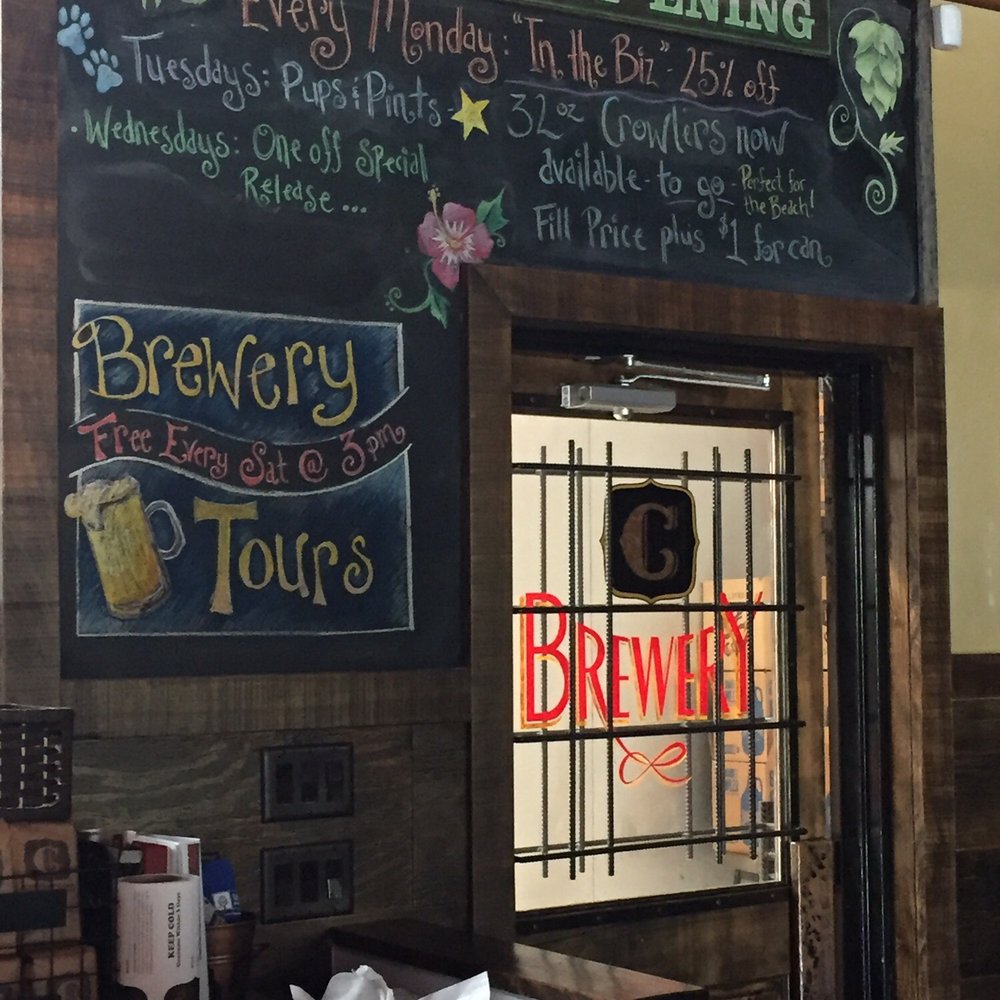 PENING
Every Monday: "In the Biz" - 25% off
Tuesdays: Pups & Pints
Wednesdays: One off Special
Release ...
32oz Crowlers now
available - to go - Perfect for
the Beach!
Fill Price plus $1 for can
Brewery
Free Every Sat @ 3pm
Tours
C
BREWERY
KEEP COLD